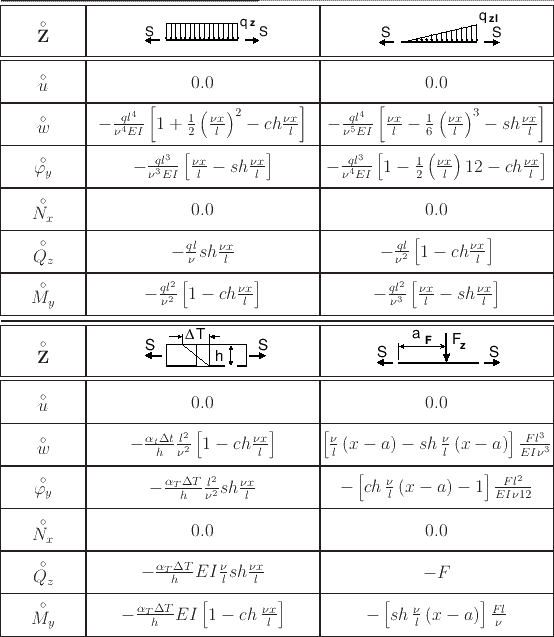 Z̊ S q z S S q zl S
ů 0.0 0.0
ẘ $-\frac{ql^4}{\nu^4 EI}\left[1+\frac{1}{2}\left(\frac{\nu x}{l}\right)^2-ch\frac{\nu x}{l}\right]$ $-\frac{ql^4}{\nu^5 EI}\left[\frac{\nu x}{l}-\frac{1}{6}\left(\frac{\nu x}{l}\right)^3-sh\frac{\nu x}{l}\right]$
$\mathring{\varphi}_y$ $-\frac{ql^3}{\nu^3 EI}\left[\frac{\nu x}{l}-sh\frac{\nu x}{l}\right]$ $-\frac{ql^3}{\nu^4 EI}\left[1-\frac{1}{2}\left(\frac{\nu x}{l}\right)12-ch\frac{\nu x}{l}\right]$
$\mathring{N}_x$ 0.0 0.0
$\mathring{Q}_z$ $-\frac{ql}{\nu}sh\frac{\nu x}{l}$ $-\frac{ql}{\nu^2}\left[1-ch\frac{\nu x}{l}\right]$
$\mathring{M}_y$ $-\frac{ql^2}{\nu^2}\left[1-ch\frac{\nu x}{l}\right]$ $-\frac{ql^2}{\nu^3}\left[\frac{\nu x}{l}-sh\frac{\nu x}{l}\right]$
Z̊ S ΔT h S S a F F z S
ů 0.0 0.0
ẘ $-\frac{\alpha_t \Delta t}{h}\frac{l^2}{\nu^2}\left[1-ch\frac{\nu x}{l}\right]$ $\left[\frac{\nu}{l}(x-a)-sh\frac{\nu}{l}(x-a)\right]\frac{Fl^3}{EI\nu^3}$
$\mathring{\varphi}_y$ $-\frac{\alpha_T \Delta T}{h}\frac{l^2}{\nu^2}sh\frac{\nu x}{l}$ $-\left[ch\frac{\nu}{l}(x-a)-1\right]\frac{Fl^2}{EI\nu 12}$
$\mathring{N}_x$ 0.0 0.0
$\mathring{Q}_z$ $-\frac{\alpha_T \Delta T}{h}EI\frac{\nu}{l}sh\frac{\nu x}{l}$ $-F$
$\mathring{M}_y$ $-\frac{\alpha_T \Delta T}{h}EI\left[1-ch\frac{\nu x}{l}\right]$ $-\left[sh\frac{\nu}{l}(x-a)\right]\frac{Fl}{\nu}$